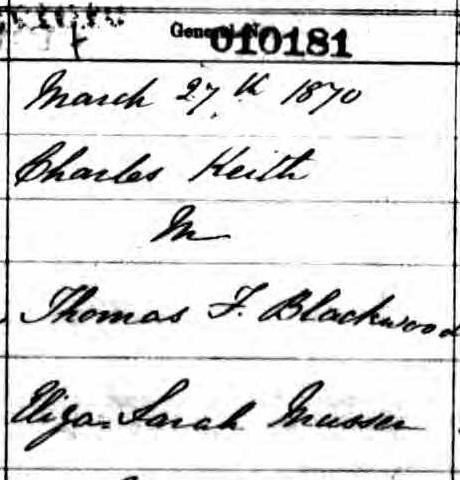 General No.
010181
March 27th 1870
Charles Keith
M
Thomas F. Blackwood
Eliza Sarah Musser